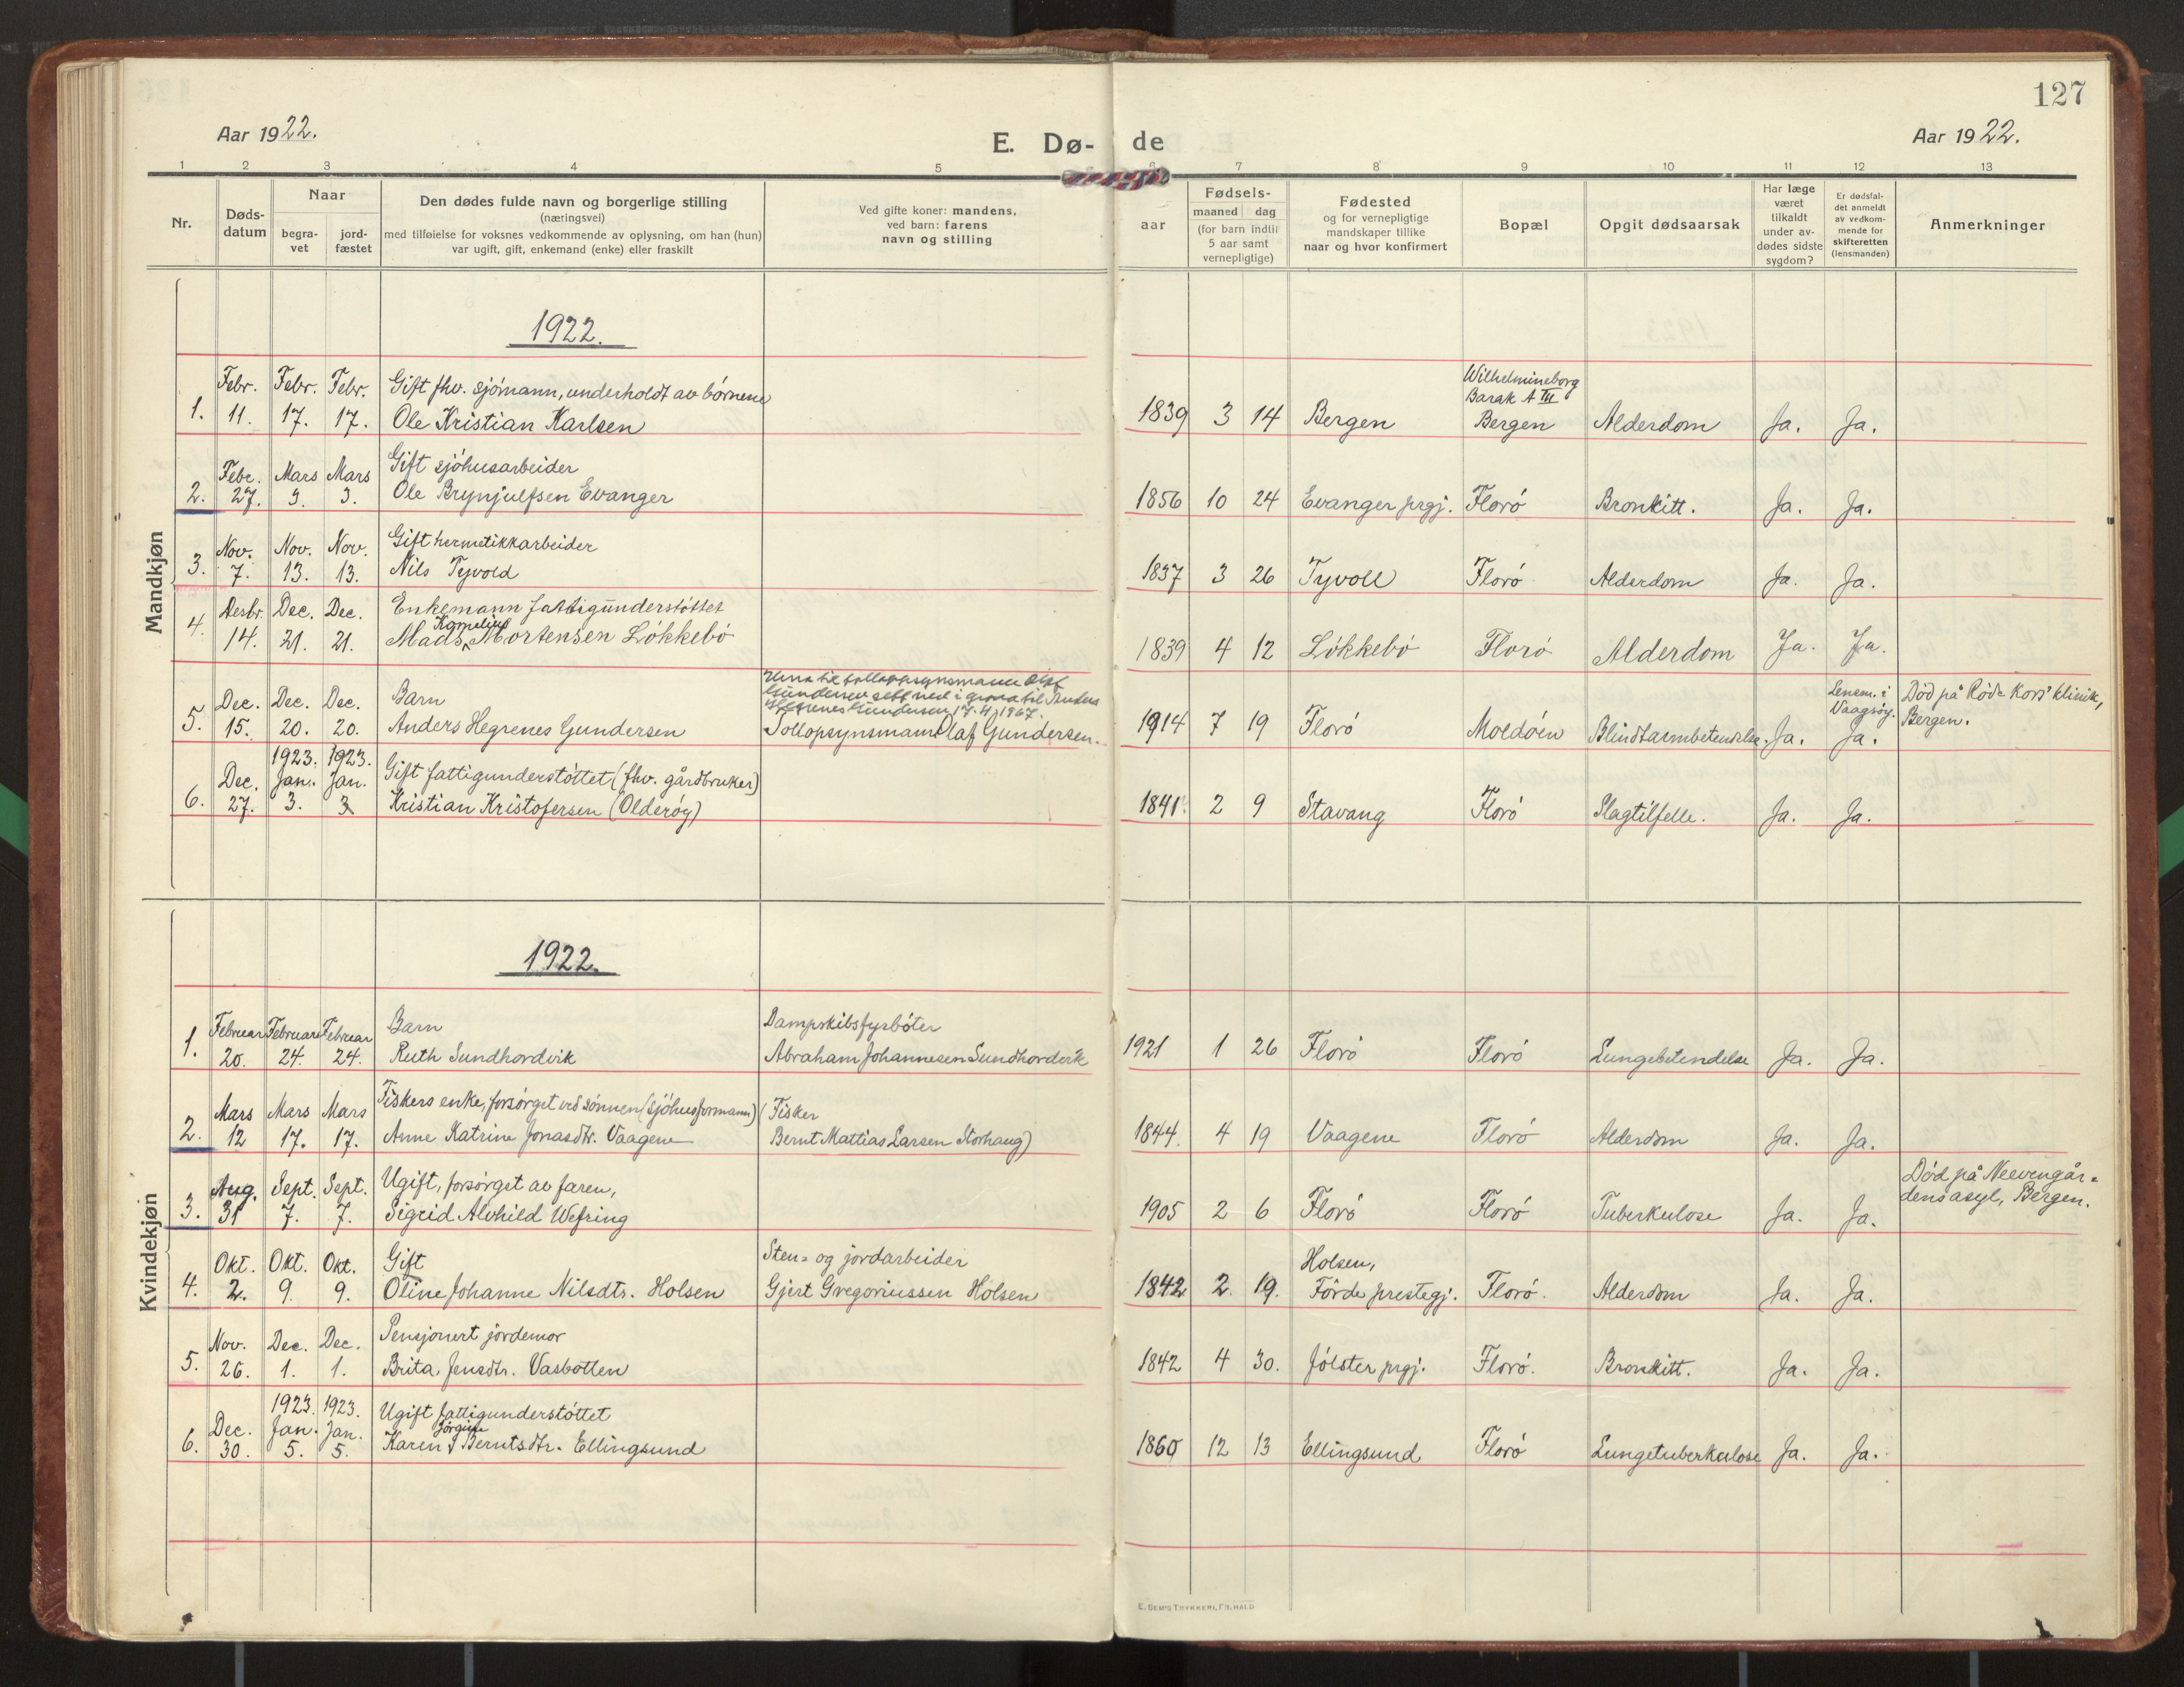 127
Aar 1922.
E. Dø- de
Aar 1922.
1 2 3 4 5 6 7 8 9 10 11 12 13
Nr.
Døds-
datum
Naar
begra-
vet
jord-
fæstet
Den dødes fulde navn og borgerlige stilling
(næringsvei)
med tilføielse for voksnes vedkommende av oplysning, om han (hun)
var ugift, gift, enkemand (enke) eller fraskilt
Ved gifte koner: mandens,
ved barn: farens
navn og stilling
Fødsels-
aar
maaned dag
(for barn indtil
5 aar samt
vernepligtige)
Fødested
og for vernepligtige
mandskaper tillike
naar og hvor konfirmert
Bopæl
Opgit dødsaarsak
Har læge
været
tilkaldt
under av-
dødes sidste
sygdom?
Er dødsfal-
det anmeldt
av vedkom-
mende for
skifteretten
(lensmanden)
Anmerkninger
Mandkjøn
1922.
Febr. Febr. Febr. Gift fhv. sjömann, underholdt av börnene Wilhelmineborg
Barak A III
1. 11. 17. 17. Ole Kristian Karlsen 1839 3 14 Bergen Bergen Alderdom Ja. Ja.
Febr. Mars Mars Gift sjöhusarbeider
2. 27. 3. 3. Ole Brynjulfsen Evanger 1856 10 24 Evanger prgj. Florö Bronkitt. Ja. Ja.
Nov. Nov. Nov. Gift hermetikkarbeider
3. 7. 13. 13. Nils Tyvold 1837 3 26 Tyvoll Florö Alderdom Ja. Ja.
Desbr. Dec. Dec. Enkemann fattigunderstöttet
Kornelius
4. 14. 21. 21. Mads Mortensen Lökkebö 1839 4 12 Lökkebö Florö Alderdom Ja. Ja.
Urna til tolloppsynsmann Olaf
Gundersen sett ned i grava til Anders
Hegrenes Gundersen 17.4.1967.
Dec. Dec. Dec. Barn Lensm. i
Vaagsöy. Död på Röde Kors' klinik,
Bergen.
5. 15. 20. 20. Anders Hegrenes Gundersen Tollopsynsmann Olaf Gundersen. 1914 7 19 Florö Moldöen Blindtarmbetendelse. Ja. Ja.
1923. 1923.
Dec. Jan. Jan. Gift fattigunderstöttet (fhv. gårdbruker)
6. 27. 3. 3 Kristian Kristofersen (Olderöy) 1841 2 9 Stavang Florö Slagtilfelle. Ja. Ja.
Kvindekjøn
1922.
Februar Februar Februar Barn Dampskibsfyrböter
1. 20. 24. 24. Ruth Sundhordvik Abraham Johannesen Sundhordvik 1921 1 26 Florö Florö Lungebetendelse Ja. Ja.
Mars Mars Mars Fiskers enke, forsörget ved sönnen (sjöhusformann) (Fisker
2. 12 17. 17. Anne Katrine Jonasdtr. Vaagene Bernt Mattias Larsen Storhaug) 1844. 4 19 Vaagene Florö Alderdom Ja. Ja.
Aug. Sept. Sept. Ugift, forsörget av faren, Död på Neevengår-
dens asyl, Bergen.
3. 31 7. 7. Sigrid Alvhild Wefring 1905 2 6 Florö Florö Tuberkulose Ja. Ja.
Okt. Okt. Okt. Gift Sten- og jordarbeider Holsen,
4. 2. 9. 9. Oline Johanne Nilsdtr. Holsen Gjert Gregoriussen Holsen 1842 2. 19. Förde prestegj. Florö. Alderdom Ja. Ja.
Nov. Dec. Dec. Pensjonert jordemor
5. 26. 1. 1. Brita Jensdtr. Vasbotten 1842 4 30. Jölster prgj. Florö. Bronkitt. Ja. Ja.
1923. 1923.
Dec. Jan. Jan. Ugift fattigunderstöttet
Jörgine
6. 30. 5. 5. Karen Berntsdtr. Ellingsund 1860 12 13 Ellingsund Florö Lungetuberkulose Ja. Ja.
E. SEM'S TRYKKERI, FR.HALD